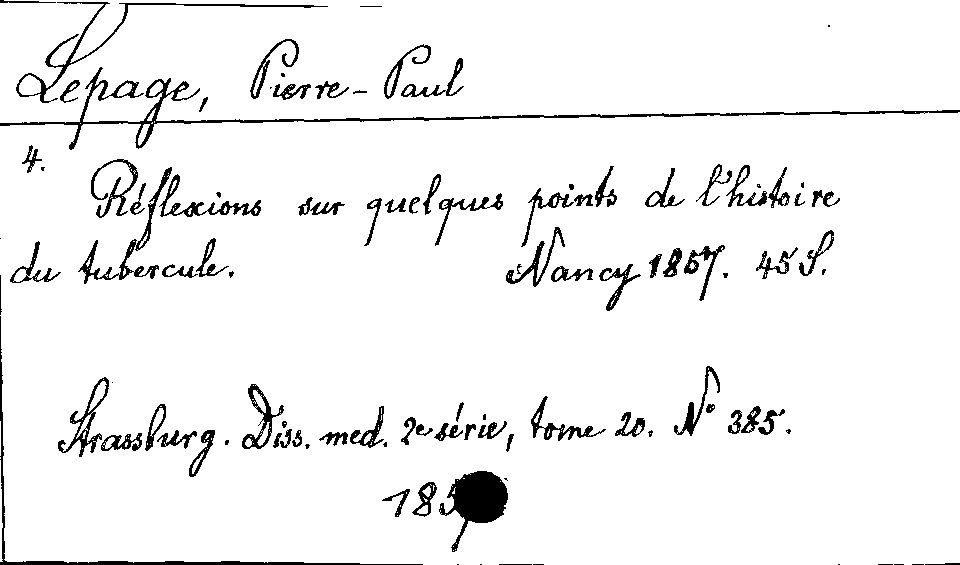 Lepage, Pierre-Paul
4.
Réflexions sur quelques points de l'histoire
du tubercule. Nancy 1857. 45 S.
Strassburg. Diss. med. 2e série, tome 20. N° 385.
185